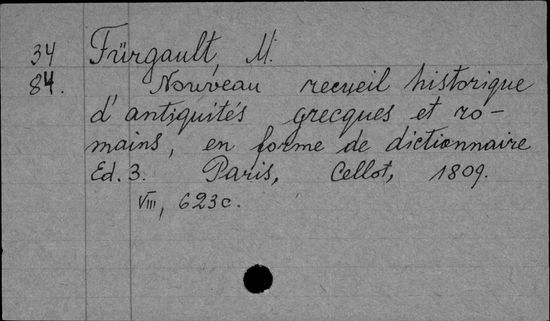 34 Fürgault, M.
84. Nouveau recueil historique
d'antiquités grecques et ro-
mains, en forme de dictionnaire
Ed. 3. Paris, Cellot, 1809.
VIII, 623c.